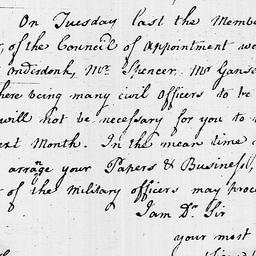 On Tuesday last the Membe
of the Council of Appointment we
Ondisdonk, Mr. Spencer, Mr Ganse
here being many civil Officers to be
will not be necessary for you to
ext Month. In the mean time
arrange your Papers & Business,
of the Military officers may proc
I am Dr. Sir
your most